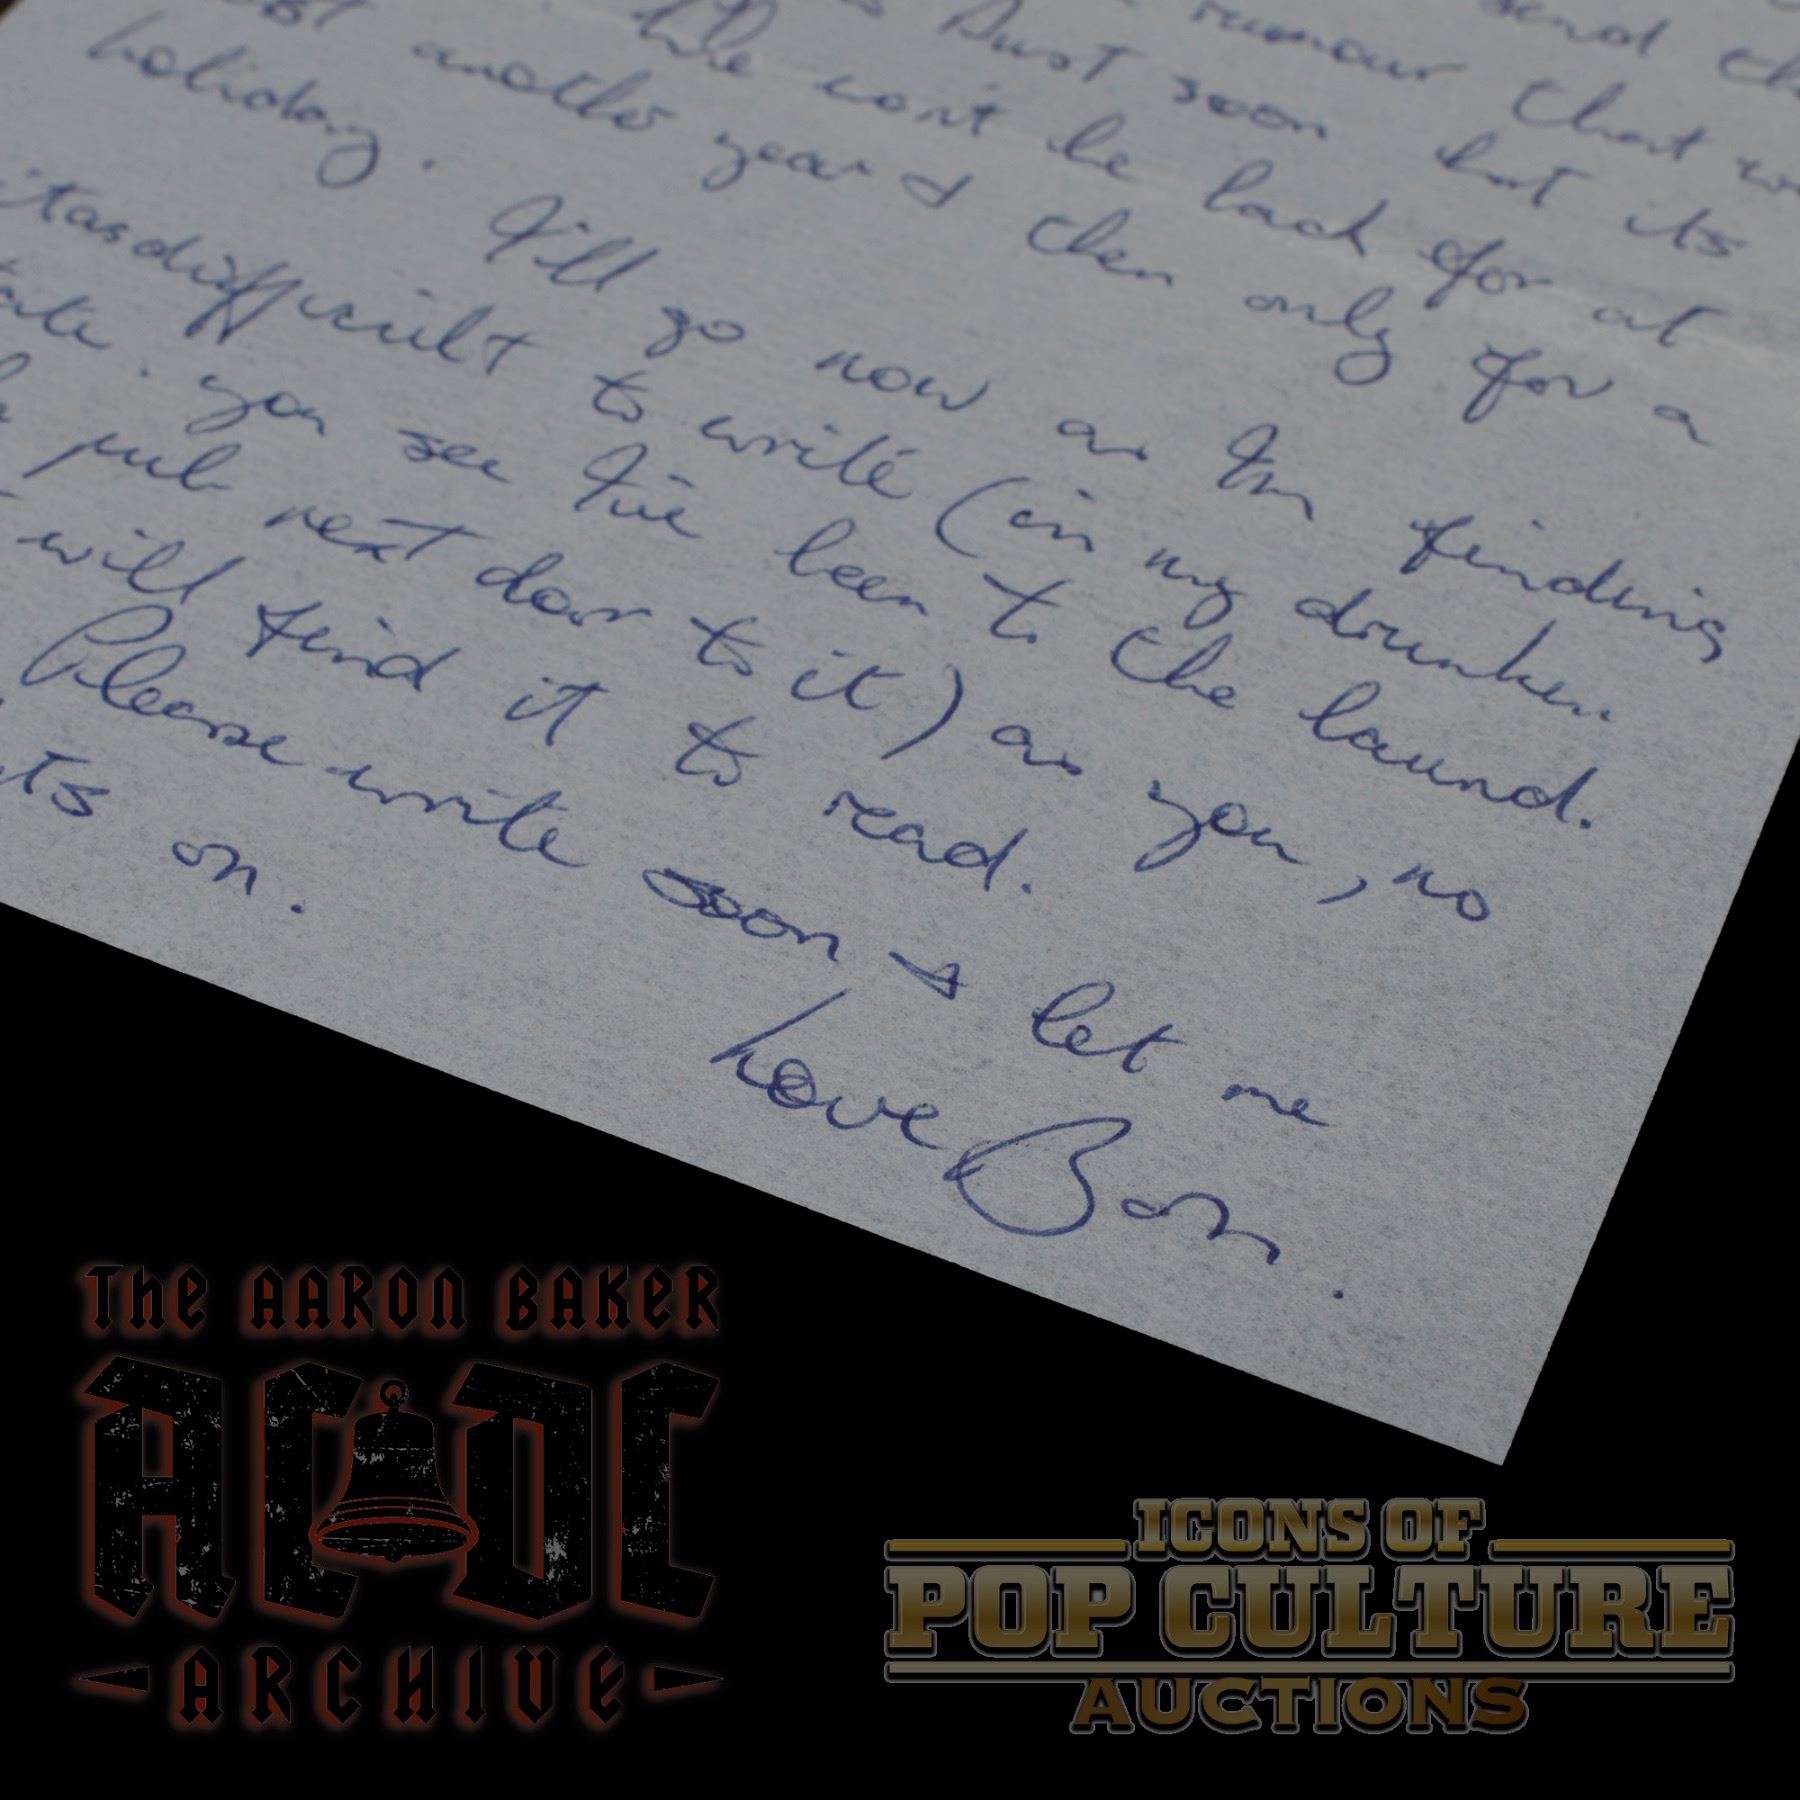 send
rumour that
Aust soon but its
We wont be back for at
another year & then only for a
holiday. I'll go now as Im finding
itasdifficult to write (in my drunken
you see I've been to the laund.
pub next door to it) as you, no
will find it to read.
Please write soon & let me
on.
Love Bon.
THE AARON BAKER
AC DC
ARCHIVE
ICONS OF
POP CULTURE
AUCTIONS